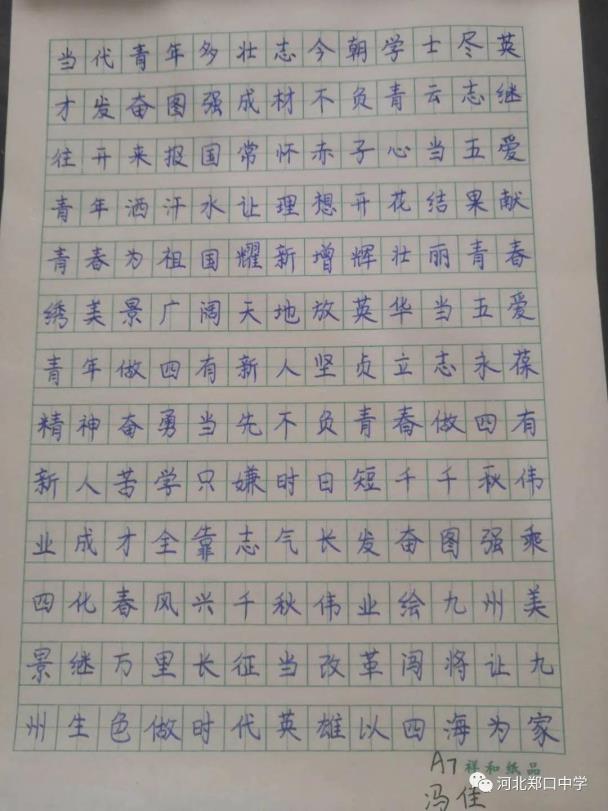 当代青年多壮志今朝学士尽英
才发奋图强成材不负青云志继
往开来报国常怀赤子心当五爱
青年洒汗水让理想开花结果献
青春为祖国耀新增辉壮丽青春
绣美景广阔天地放英华当五爱
青年做四有新人坚贞立志永葆
精神奋勇当先不负青春做四有
新人苦学只嫌时日短千千秋伟
业成才全靠志气长发奋图强乘
四化春风兴千秋伟业绘九州美
景继万里长征当改革闯将让九
州生色做时代英雄以四海为家
A7 祥和纸品
冯佳
河北郑口中学